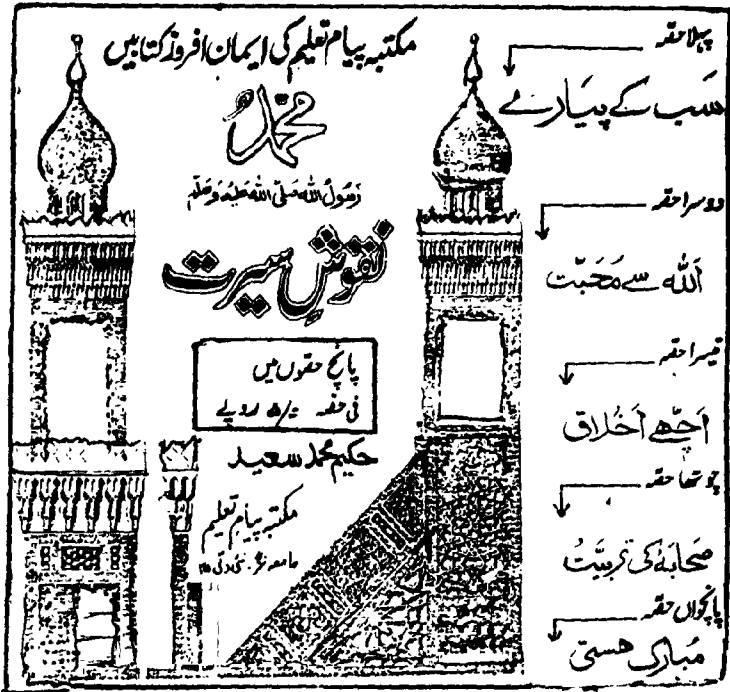 مکتبہ پیام تعلیم کی ایمان افروز کتابیں
محمد
رَسُولُ اللہ صَلَّی اللہ عَلَیْہِ وَسَلَّم
نقوشِ سیرت
پانچ حصّوں میں
فی حصّہ ۵/= روپے
حکیم محمد سعید
مکتبہ پیام تعلیم
جامعہ نگر۔ نئی دلی ۲۵
پہلا حصّہ
سَب کے پیَارے
دوسرا حصّہ
اَللہ سے مُحَبّت
تیسرا حصّہ
اَچھّے اَخْلَاق
چوتھا حصّہ
صَحَابَہ کی تربیَّت
پانچواں حصّہ
مُبارک ھستی